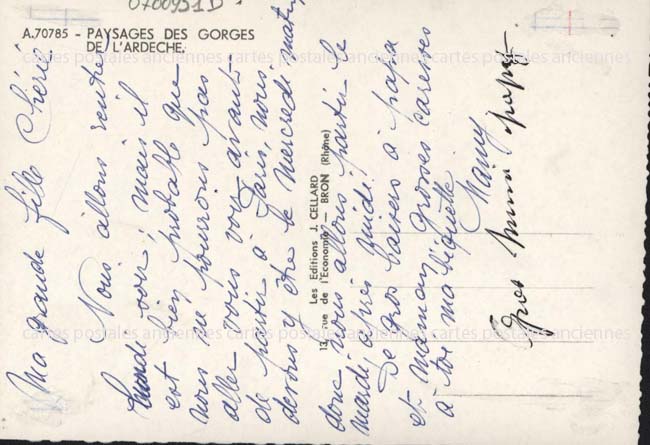 0700931D
A.70785 - PAYSAGES DES GORGES
DE L'ARDECHE.
Ma grande fille Chérie.
Nous allons rentrer
Lundi soir, mais il
est bien probable que
nous ne pourrons pas
aller vous voir avant
de partir à Paris, nous
devons y être le mercredi matin
donc nous allons partir le
mardi après midi.
De gros baisers à papa
et maman grosses caresses
à toi ma biquette
Mamy
Gros papy
Les Editions J. CELLARD
13, rue de l'Economie — BRON (Rhône)
cartes postales anciennes cartes postales anciennes cartes postales anciennes
cartes postales anciennes cartes postales anciennes cartes postales anciennes